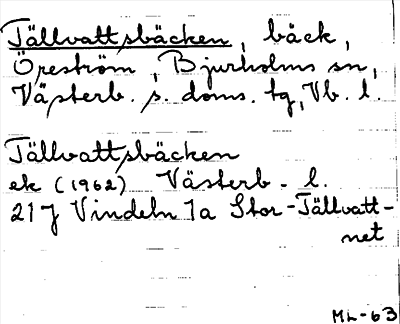 Tällvattsbäcken, bäck,
Öreström, Bjurholms sn,
Västerb. s. doms. tg, Vb. l.
Tällvattsbäcken
ek (1962) Västerb. l.
21 J Vindeln 1a Stor-Tällvatt-
net
ML-63